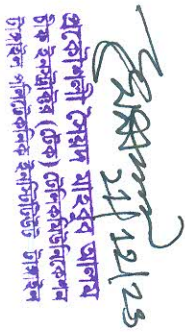 21/12/23
প্রকৌশলী সৈয়দ মাহবুব আলম
চীফ ইনস্ট্রাক্টর (টেক) টেলিকমিউনিকেশন
টাংগাইল পলিটেকনিক ইনস্টিটিউট টাংগাইল